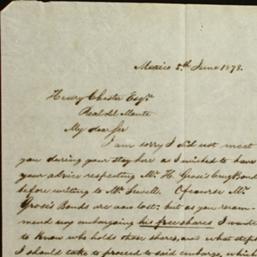 Mexico 5th June 1878.
Henry Chester Esqr.
Real del Monte
My dear Sir
I am sorry I did not meet
you during your stay here as I wished to have
your advice respecting Mr. H. Grose's
before writing to Mr. Of course Mr.
Grose's Bonds are now lost; but as you recom-
mend my embargoing his free shares I want
to know who holds those shares, and what steps
I should take to proceed to said embargo, which